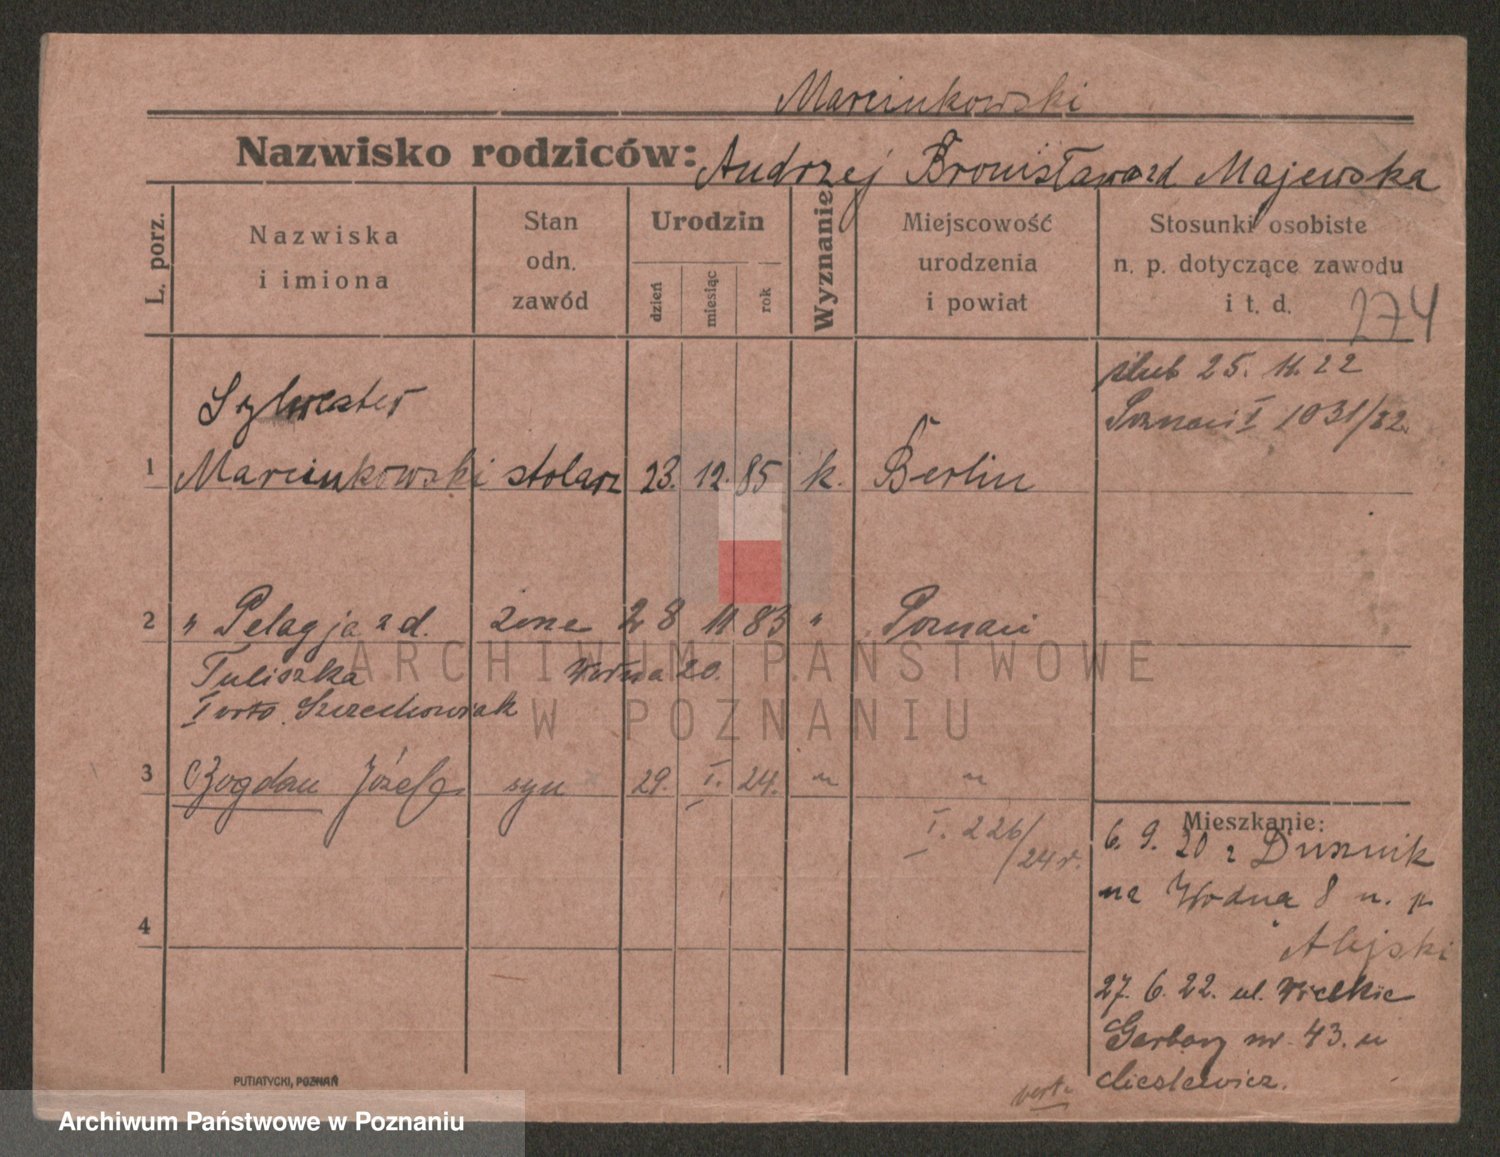 Marcinkowski
Nazwisko rodziców: Andrzej Bronisława zd Majewska
L. porz.
Nazwiska
i imiona
Stan
odn.
zawód
Urodzin
dzień
miesiąc
rok
Wyznanie
Miejscowość
urodzenia
i powiat
Stosunki osobiste
n. p. dotyczące zawodu
i t. d.
274
ślub 25. 11. 22
Poznań I 1031/22.
Sylwester
1 Marcinkowski stolarz 23. 12. 85 k. Berlin
2 " Pelagja zd. żona 28 11 83 " Poznań
Tuliszka Wodna 20.
I voto Szczechowiak
3 Bogdan Józef syn 29. I. 24. " "
I. 226/24 r.
4
Mieszkanie:
6. 9. 20 z Dusznik
na Wodna 8 u. p
27. 6. 22. ul. Wielkie
Garbary nr. 43. u
Cieslewicz.
vert.
PUTIATYCKI, POZNAŃ
ARCHIWUM PAŃSTWOWE
W POZNANIU
Archiwum Państwowe w Poznaniu